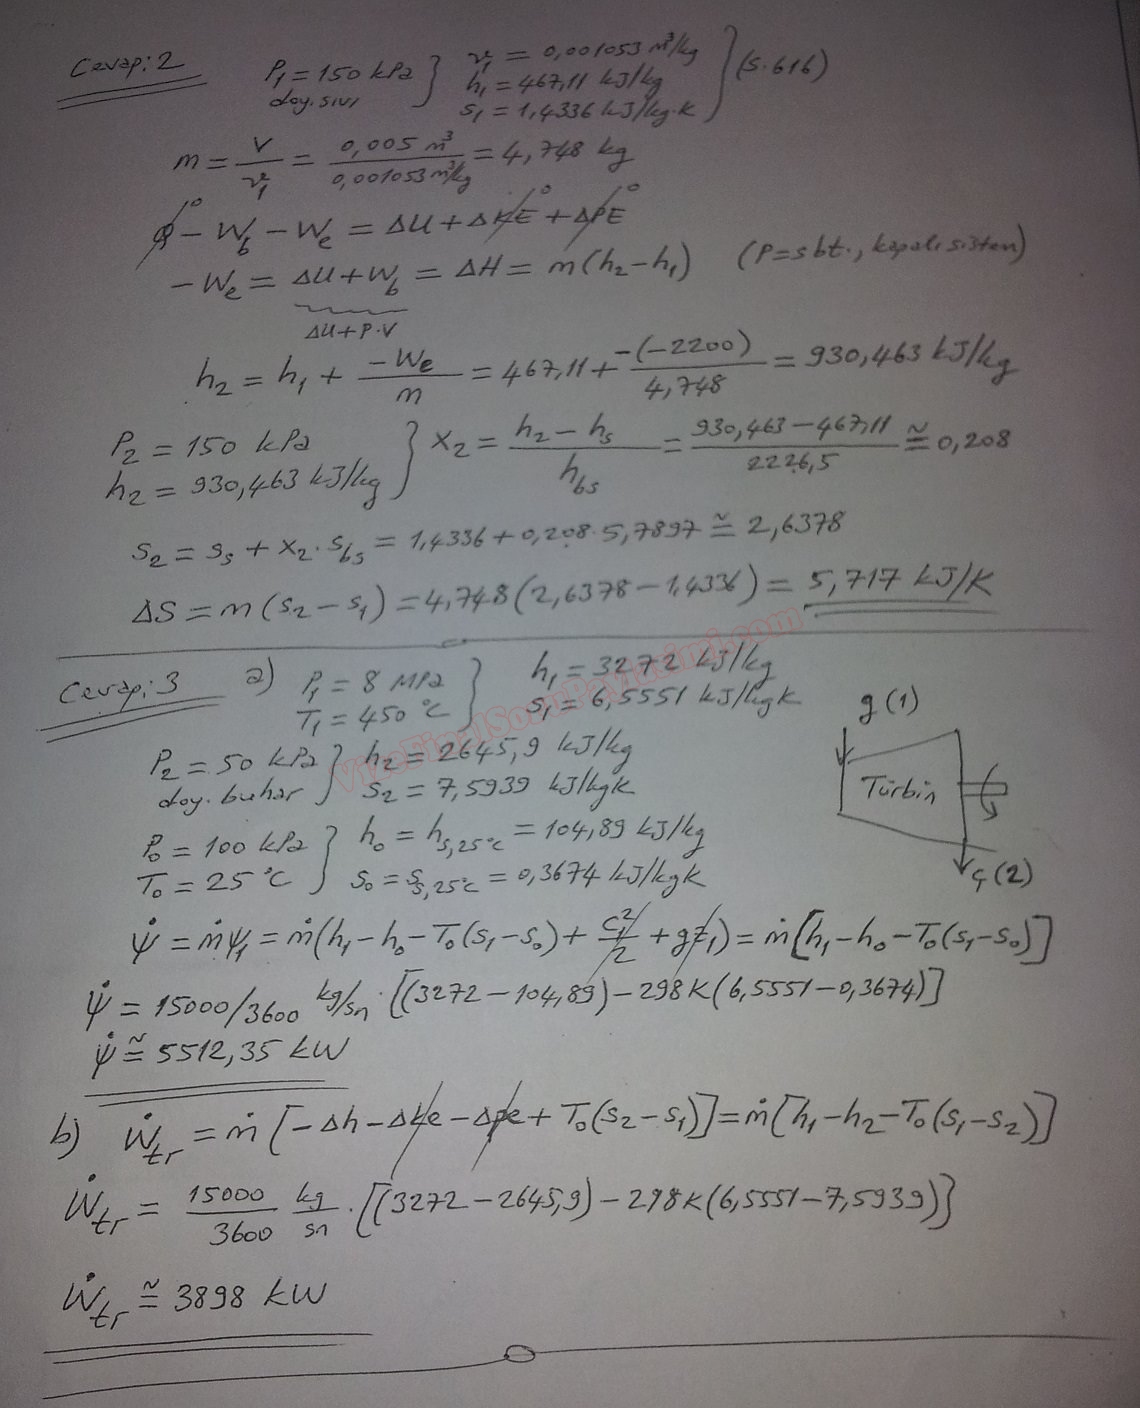 Cevap:2
P₁ = 150 kPa
doy. sıvı
v₁ = 0,001053 m³/kg
h₁ = 467,11 kJ/kg
s₁ = 1,4336 kJ/kg·K
(s.616)
m = V/v₁ = 0,005 m³ / 0,001053 m³/kg = 4,748 kg
Q⁰ − W_b − W_e = ΔU + ΔKE⁰ + ΔPE⁰
−W_e = ΔU + W_b = ΔH = m(h₂−h₁) (P=sbt., kapalı sistem)
ΔU+P·V
h₂ = h₁ + −W_e/m = 467,11 + −(−2200)/4,748 = 930,463 kJ/kg
P₂ = 150 kPa
h₂ = 930,463 kJ/kg
x₂ = (h₂ − h_s)/h_bs = (930,463 − 467,11)/2226,5 ≅ 0,208
s₂ = s_s + x₂·s_bs = 1,4336 + 0,208·5,7897 ≅ 2,6378
ΔS = m(s₂ − s₁) = 4,748(2,6378−1,4336) = 5,717 kJ/K
VizeFinalSoruPaylasimi.com
Cevap:3
a)
P₁ = 8 MPa
T₁ = 450 °C
h₁ = 3272 kJ/kg
s₁ = 6,5551 kJ/kgK
P₂ = 50 kPa
doy. buhar
h₂ = 2645,9 kJ/kg
s₂ = 7,5939 kJ/kgK
g(1)
Türbin
ç(2)
P₀ = 100 kPa
T₀ = 25 °C
h₀ = h_s,25°C = 104,89 kJ/kg
s₀ = s_s,25°C = 0,3674 kJ/kgK
ψ̇ = ṁψ₁ = ṁ(h₁−h₀−T₀(s₁−s₀) + c₁²/2 + gz₁) = ṁ[h₁−h₀−T₀(s₁−s₀)]
ψ̇ = 15000/3600 kg/sn · [(3272−104,89)−298K(6,5551−0,3674)]
ψ̇ ≅ 5512,35 kW
b) Ẇ_tr = ṁ[−Δh−Δke−Δpe + T₀(s₂−s₁)] = ṁ[h₁−h₂−T₀(s₁−s₂)]
Ẇ_tr = 15000/3600 kg/sn · [(3272−2645,9)−298K(6,5551−7,5939)]
Ẇ_tr ≅ 3898 kW